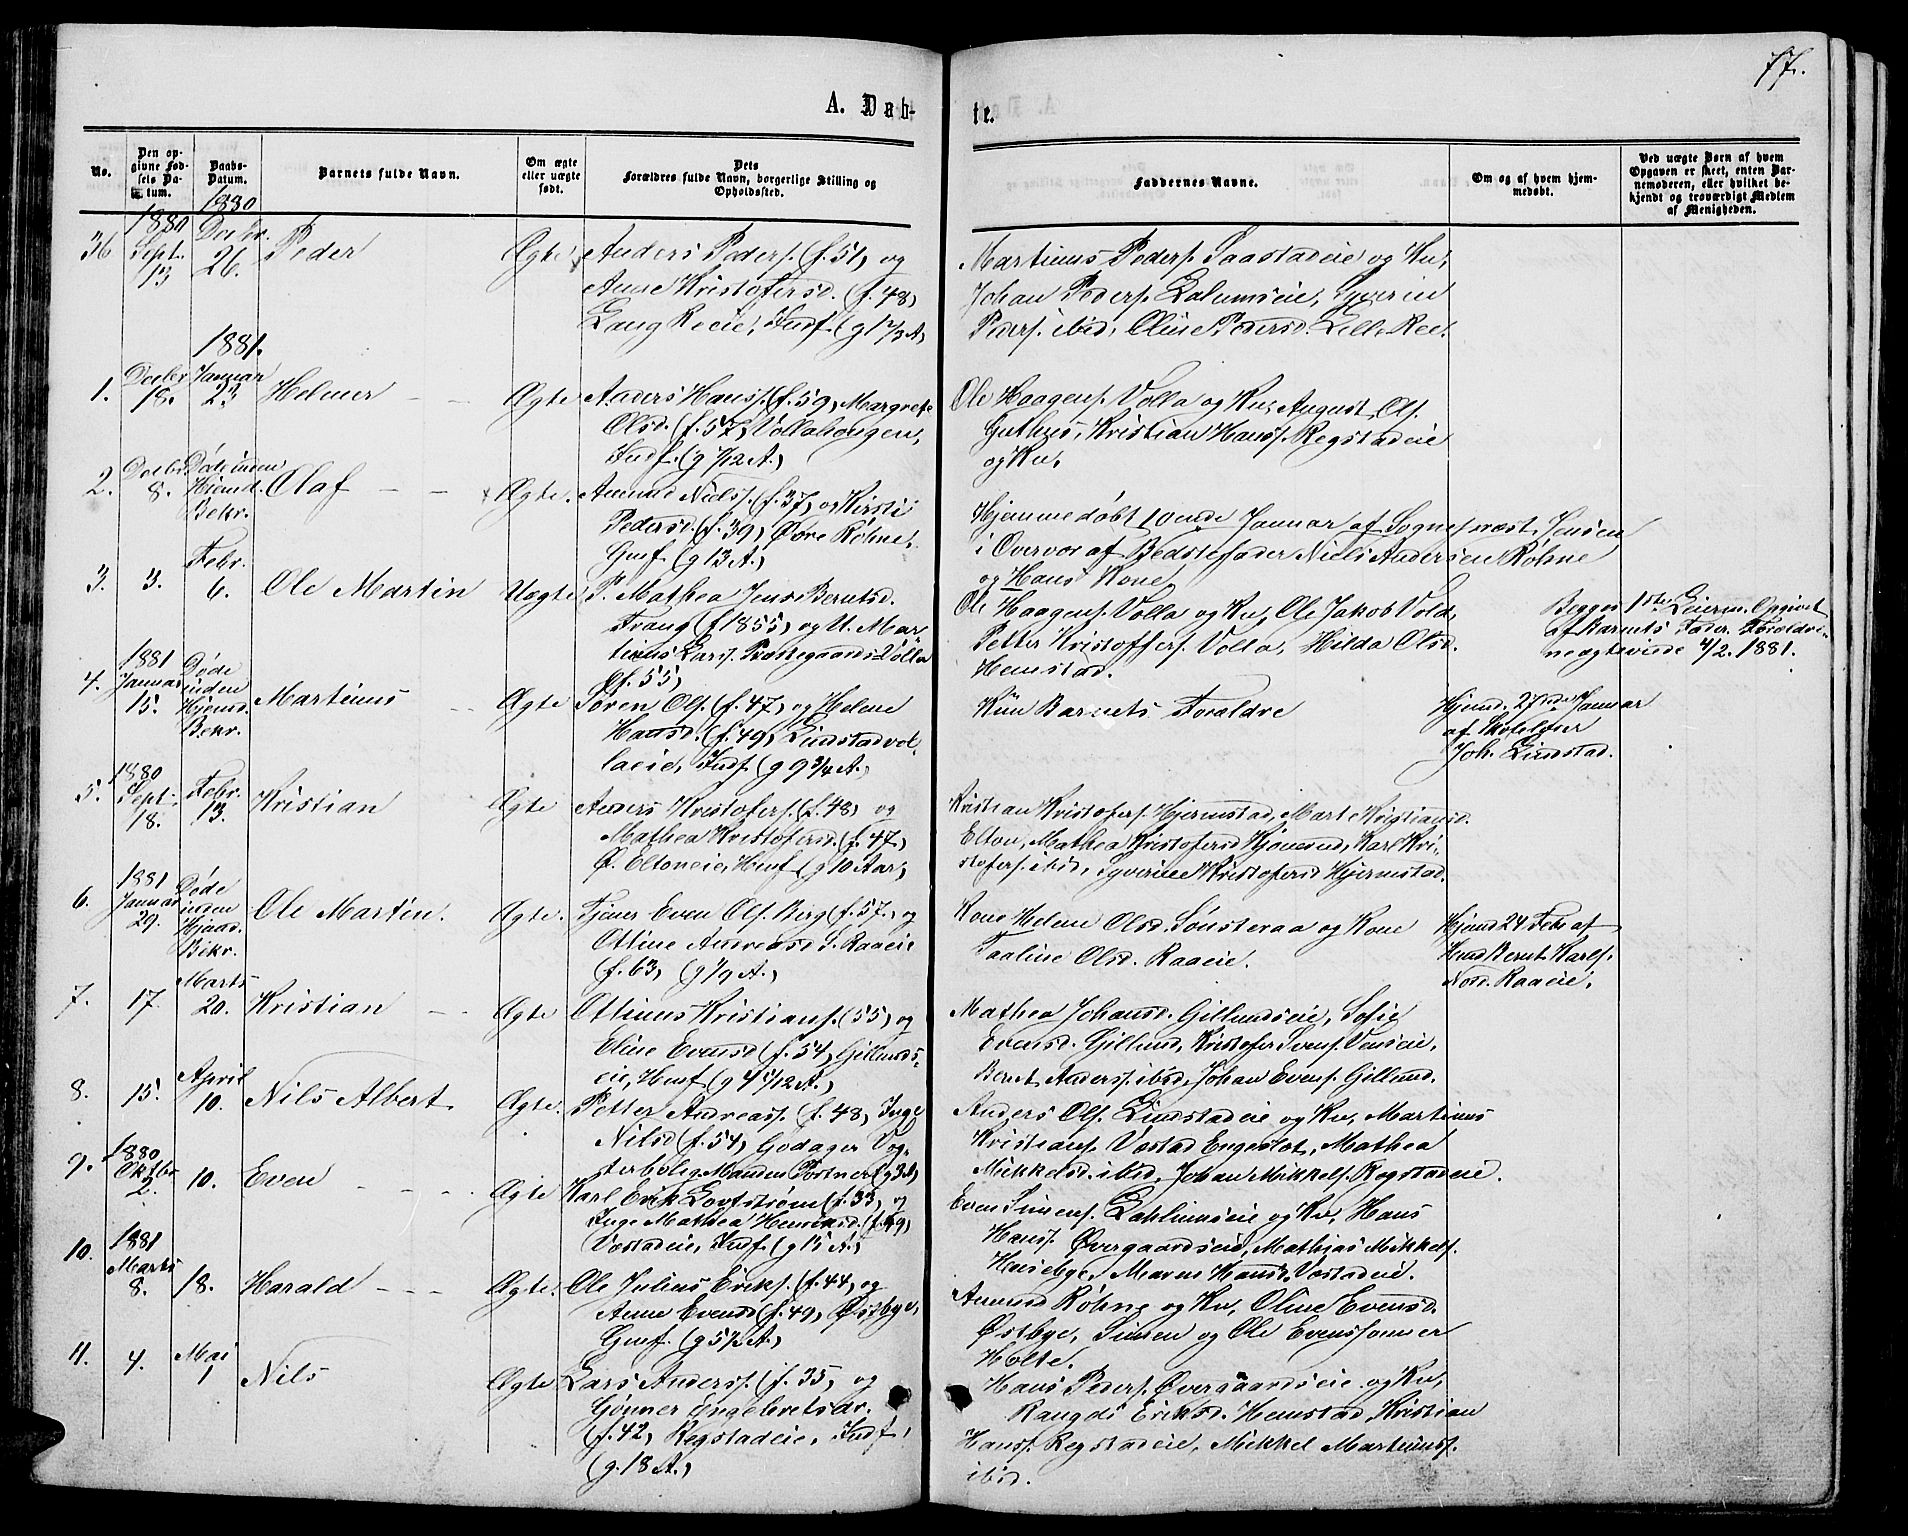 77.
A. Dab-
te.
No.
Den op-
givne Fød-
sels Da-
tum.
Daabs-
Datum.
Barnets fulde Navn.
Om ægte
eller uægte
født.
Dets
Forældres fulde Navn, borgerlige Stilling og
Opholdssted.
Faddernes Navne.
Om og af hvem hjem-
medøbt.
Ved uægte Børn af hvem
Opgaven er skeet, enten Bar-
nemoderen, eller hvilket be-
kjendt og troværdigt Medlem
af Menigheden.
36
1880
Sept.
13
1880
Decbr.
26.
Peder
Ægte
Anders Peders. (f. 51) og
Anne Kristofersd. (f. 48)
Lang Reeie, Indf.
Martinus Peders. Saastadeie og Ku,
Johan Peders. Lalumseie, Syverin
Peders. ibid, Oline Pedersd. Lille Ree.
1881.
1.
Decbr
18.
Januar
23
Helmer
Ægte
Anders Hanss. (f. 59) Margrete
Olsd. (f. 57) Vollahougen,
Indf. (g 1/12 A.)
Ole Haagens. Volla og Ku, August Ols.
Guthus, Kristian Hanss. Regstadeie
og Ku,
2.
Decbr
8.
Døde inden
Hjemd.
Bekr.
Olaf
Ægte.
Amund Nielss. (f. 37) og Kirsti
Pedersd. (f. 39) Øvre Røhne,
Gmf. (g 13 A.)
Hjemmedøbt 10ende Januar af Sognepræst Jensen
i Overvær af Bedstefader Niels Andersen Røhne
og Hans Kone
3.
3.
Febr.
6.
Ole Martin
Uægte
P. Mathea Jens Berntsd.
Trang (f 1855) og U. Mar-
tinus Larss. Præstegaards-Volla
(f. 55)
Ole Haagens. Volla og Ku, Ole Jakob Vold,
Petter Kristoffers. Volla, Hilda Olsd.
Hemstad.
Begges 1ste Leierm. Opgivet
af Barnets Fader. Forældre-
neægtevinde 4/2. 1881.
4.
1881
Januar
15.
Døde
inden
Hjemd.
Bekr.
Martinus
Ægte
Søren Ols. (f. 47) og Helene
Hansd. (f. 49) Lindstadvol-
laeie, Indf. (g 9 3/4 A.)
Kun Barnets Forældre
Hjemd. 27nde Januar
af Skolelærer
Joh. Lindstad.
5.
1880
Sept.
18.
Febr.
13.
Kristian
Ægte
Anders Kristofers. (f. 48) og
Mathea Kristofersd. (f. 47)
Ø. Eltoneie, Hmf. (g 10 Aar)
Kristian Kristofers. Hjermstad, Mart. Kristiansd.
Elton, Mathea Kristofersd Kjonerud, Karl Kri-
stofers. ibid, Syverine Kristofersd Hjermstad.
6.
1881
Januar
29.
Døde
inden
Hjemd.
Bekr.
Ole Martin.
Ægte.
Tjener Even Ols. Berg (f. 57.) og
Otline Andreasd S. Raaeie
(f. 63) (g 1/9 A.)
Kone Helene Olsd. Sønsteraa og Kone
Paaline Olsd. Raaeie.
Hjemd 24 Febr af
Hmd Bernt Karls.
Nord. Raaeie,
7.
17.
Marts
20.
Kristian
Ægte
Ottinus Kristians. (55) og
Eline Evensd (f. 54) Gillunds-
eie, Hmf.
Mathea Johansd. Gillundseie, Sofie
Evensd. Gillund, Kristofer Svens. Vanseie,
Bernt Anderss. ibid, Johan Evens. Gillund.
8.
15.
April
10.
Nils Albert
Ægte.
Petter Andreass. (f. 48) Inge
Nilsd (f. 54) Godager Vog-
terbolig Manden Portner (g 3 A)
Anders Ols. Lindstadeie og Ku, Martinus
Kristians. Vastad Engesløt, Mathea
Mikkelsd. ibid, Johan Mikkels. Regstadeie.
9.
1880
Oktbr
2.
10.
Even
Ægte
Karl Erik Lovfstrøm (f. 33) og
Inge Mathea Henriksd. (f. 49)
Vastadeie, Indf. (g 15 A.)
Even Simens. Lahlumseie og Ku, Hans
Hanss. Øvergaardseie, Mathias Mikkels.
Husebye, Maren Hansd. Vastadeie.
10.
1881
Marts
8.
18.
Harald
Ægte.
Ole Julius Eriks. (f. 44) og
Anne Evensd (f. 49) Østbye,
Gmf.
Amund Røhne og Ku, Oline Evensd.
Østbye, Simen og Ole Evenssønner
Holte.
11.
4.
Mai
1
Nils
Ægte
Lars Anderss. (f. 35) og
Gunner Engebretsdr.
(f. 42) Regstadeie, Indf.
(g. 18 A.)
Hans Peders. Øvergaardseie og Ku,
Rangdi Eriksd. Hemstad, Kristian
Hanss. Regstadeie, Mikkel Martinuss.
ibid.